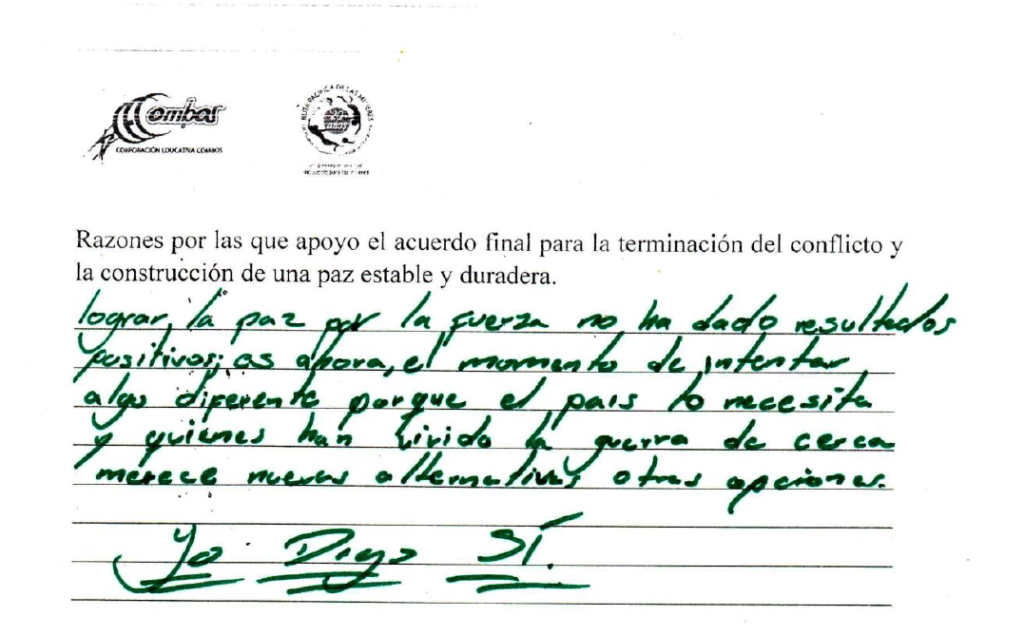 Combos
CORPORACIÓN EDUCATIVA COMBOS
RUTA PACIFICA DE LAS MUJERES
20 años
Razones por las que apoyo el acuerdo final para la terminación del conflicto y
la construcción de una paz estable y duradera.
lograr, la paz por la fuerza no ha dado resultados
positivos; es ahora, el momento de intentar
algo diferente porque el pais lo necesita
y quienes han vivido la guerra de cerca
merece nuevas alternativas otras opciones.
Yo Digo SÍ.